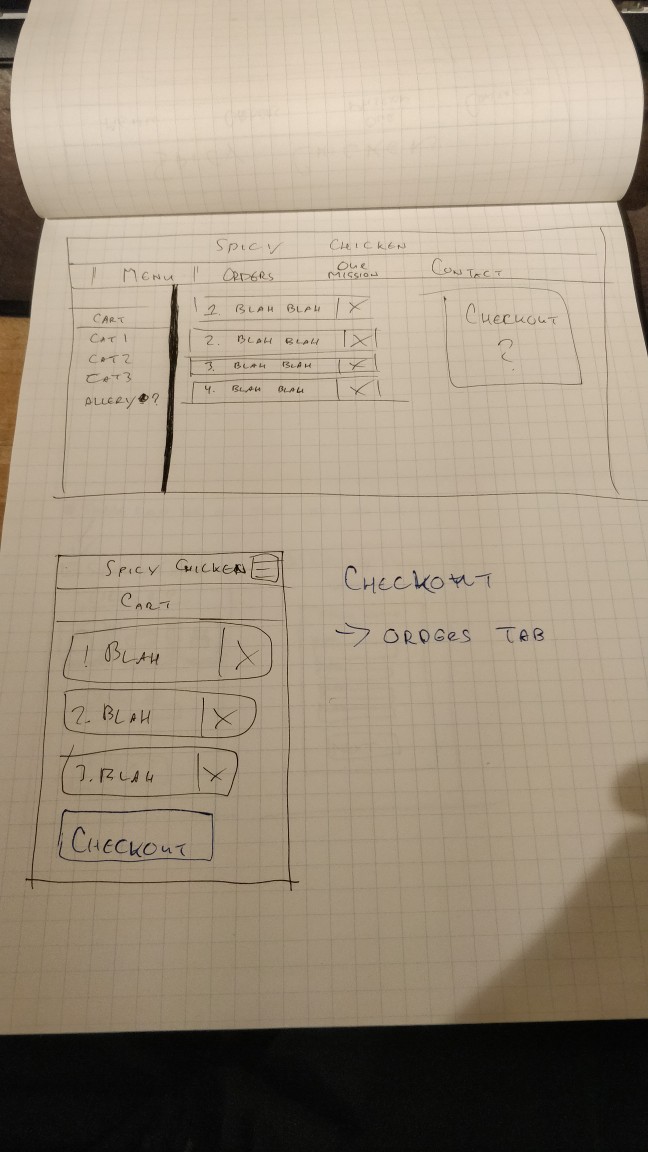 SPICY CHICKEN
MENU ORDERS OUR MISSION CONTACT
CART
CAT 1
CAT 2
CAT 3
1. BLAH BLAH X
2. BLAH BLAH X
3. BLAH BLAH X
4. BLAH BLAH X
CHECKOUT
?
SPICY CHICKEN
CART
1 BLAH X
2. BLAH X
3. BLAH X
CHECKOUT
CHECKOUT
→ ORDERS TAB